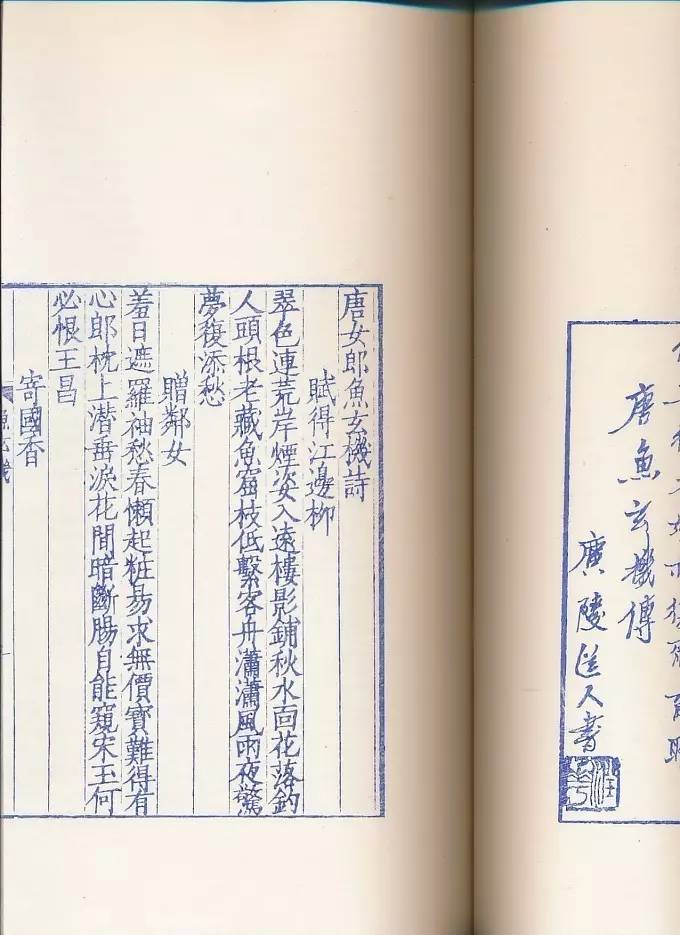 唐魚玄機傳
廣陵人書
唐女郎魚玄機詩
賦得江邊柳
翠色連荒岸煙姿入遠樓影鋪秋水面花落釣
人頭根老藏魚窟枝低繫客舟瀟瀟風雨夜驚
夢復添愁
贈鄰女
羞日遮羅袖愁春懶起粧易求無價寶難得有
心郎枕上潛垂淚花間暗斷腸自能窺宋玉何
必恨王昌
寄國香